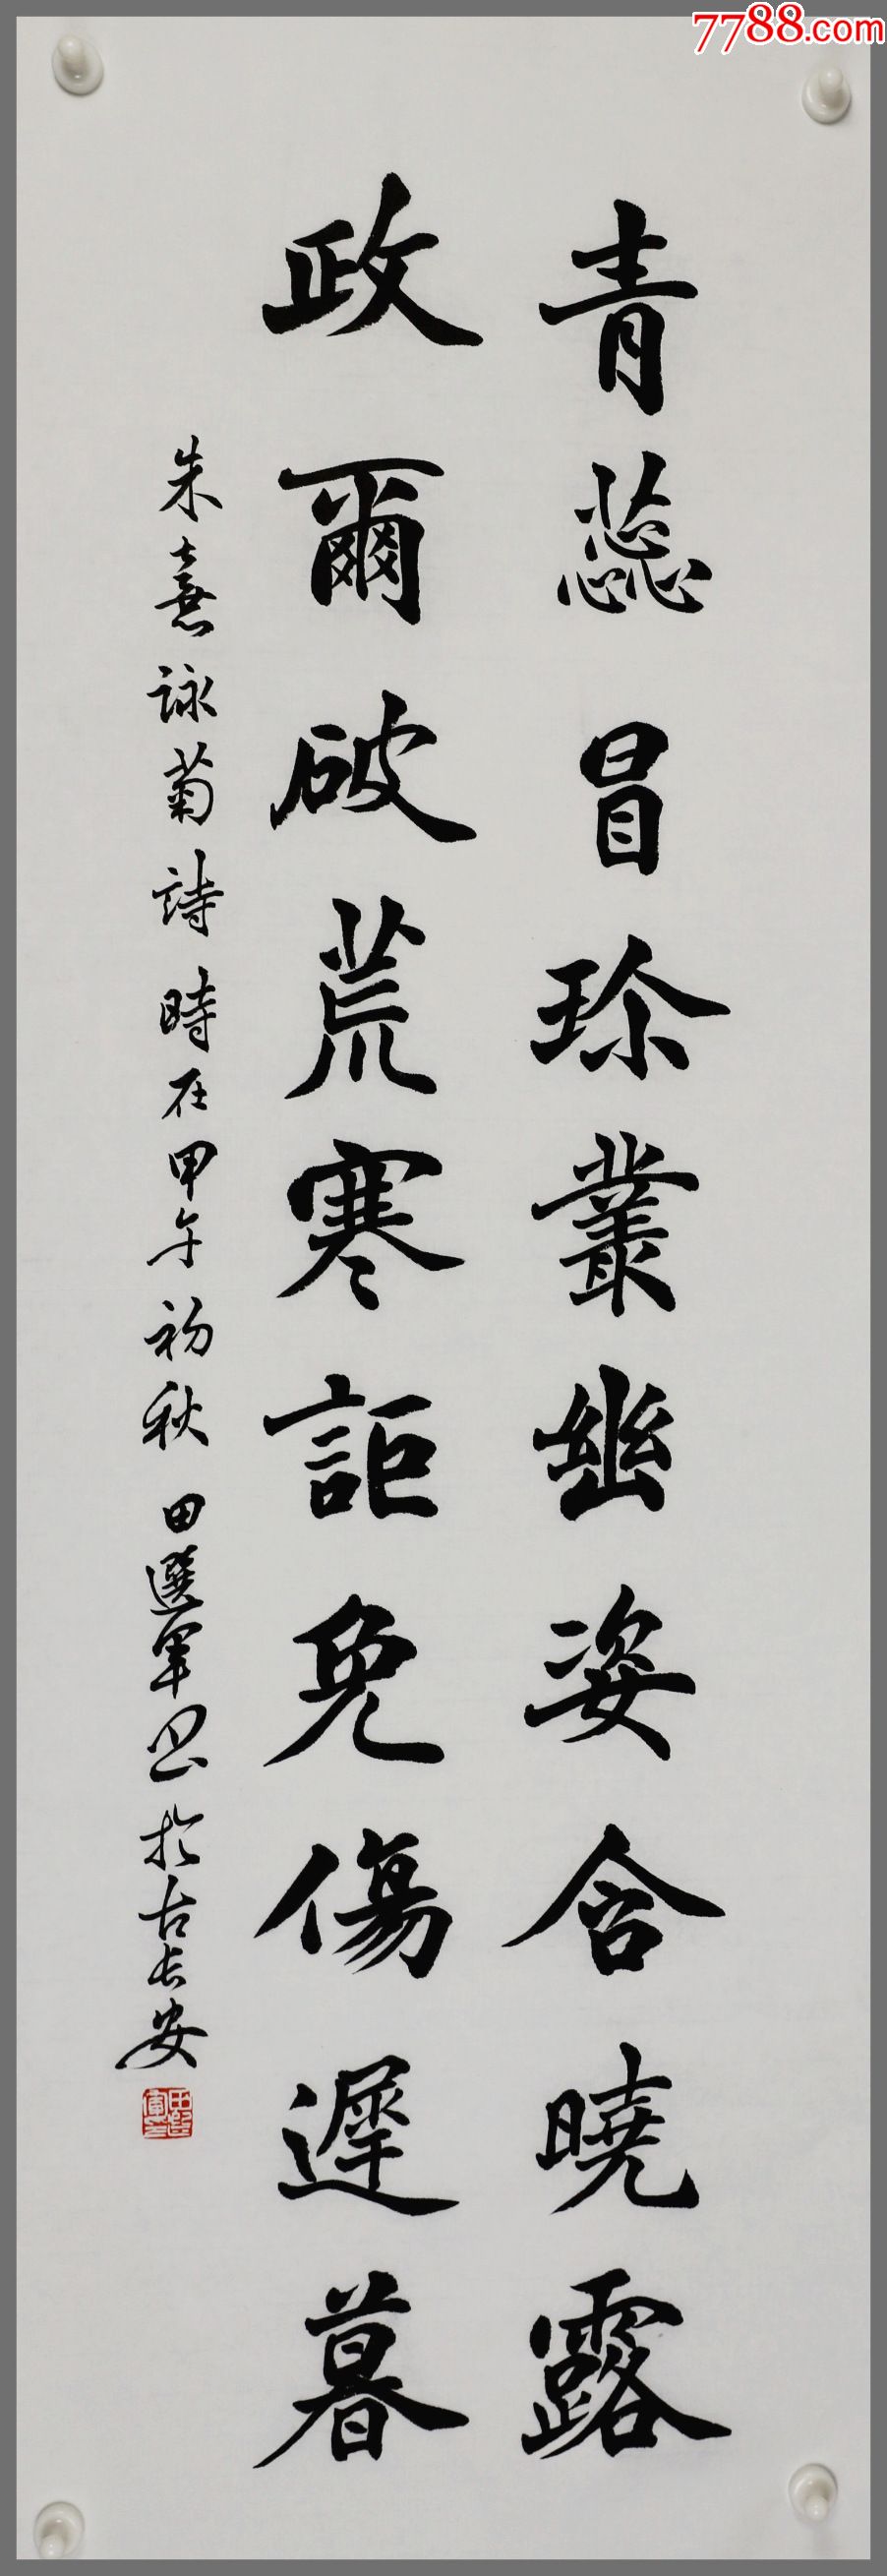 7788.com
青蕊冒珎叢幽姿含曉露
政爾破荒寒詎免傷遲暮
朱熹詠菊詩時在甲午初秋田選軍书於古长安